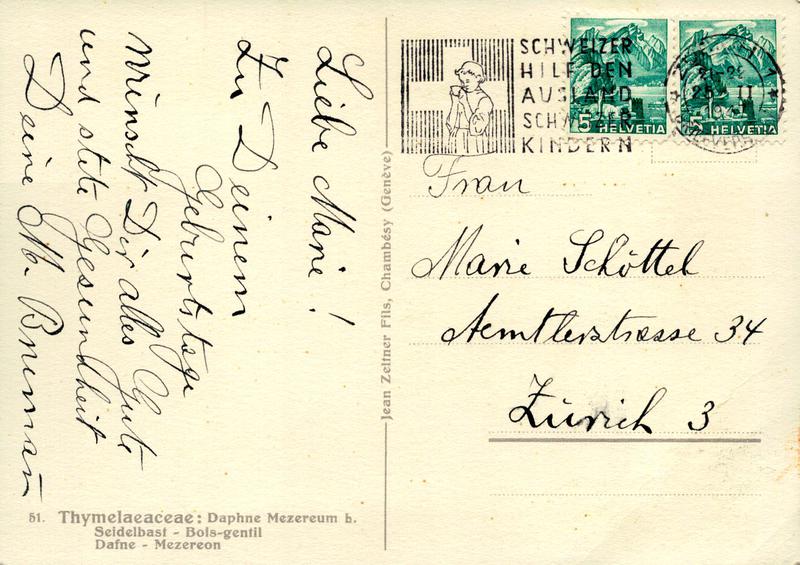 Liebe Marie!
Zu Deinem
Geburtstage
wünscht Dir alles Gute
und stete Gesundheit
Deine
Jean Zellner Fils, Chambésy (Genève)
51. Thymelaeaceae: Daphne Mezereum L.
Seidelbast - Bois-gentil
Dafne - Mezereon
SCHWEIZER
HILF DEN
AUSLAND
SCHWEIZER
KINDERN
5 HELVETIA
5 HELVETIA
25. II
Frau
Marie Schöttel
Aemtlerstrasse 34
Zürich 3